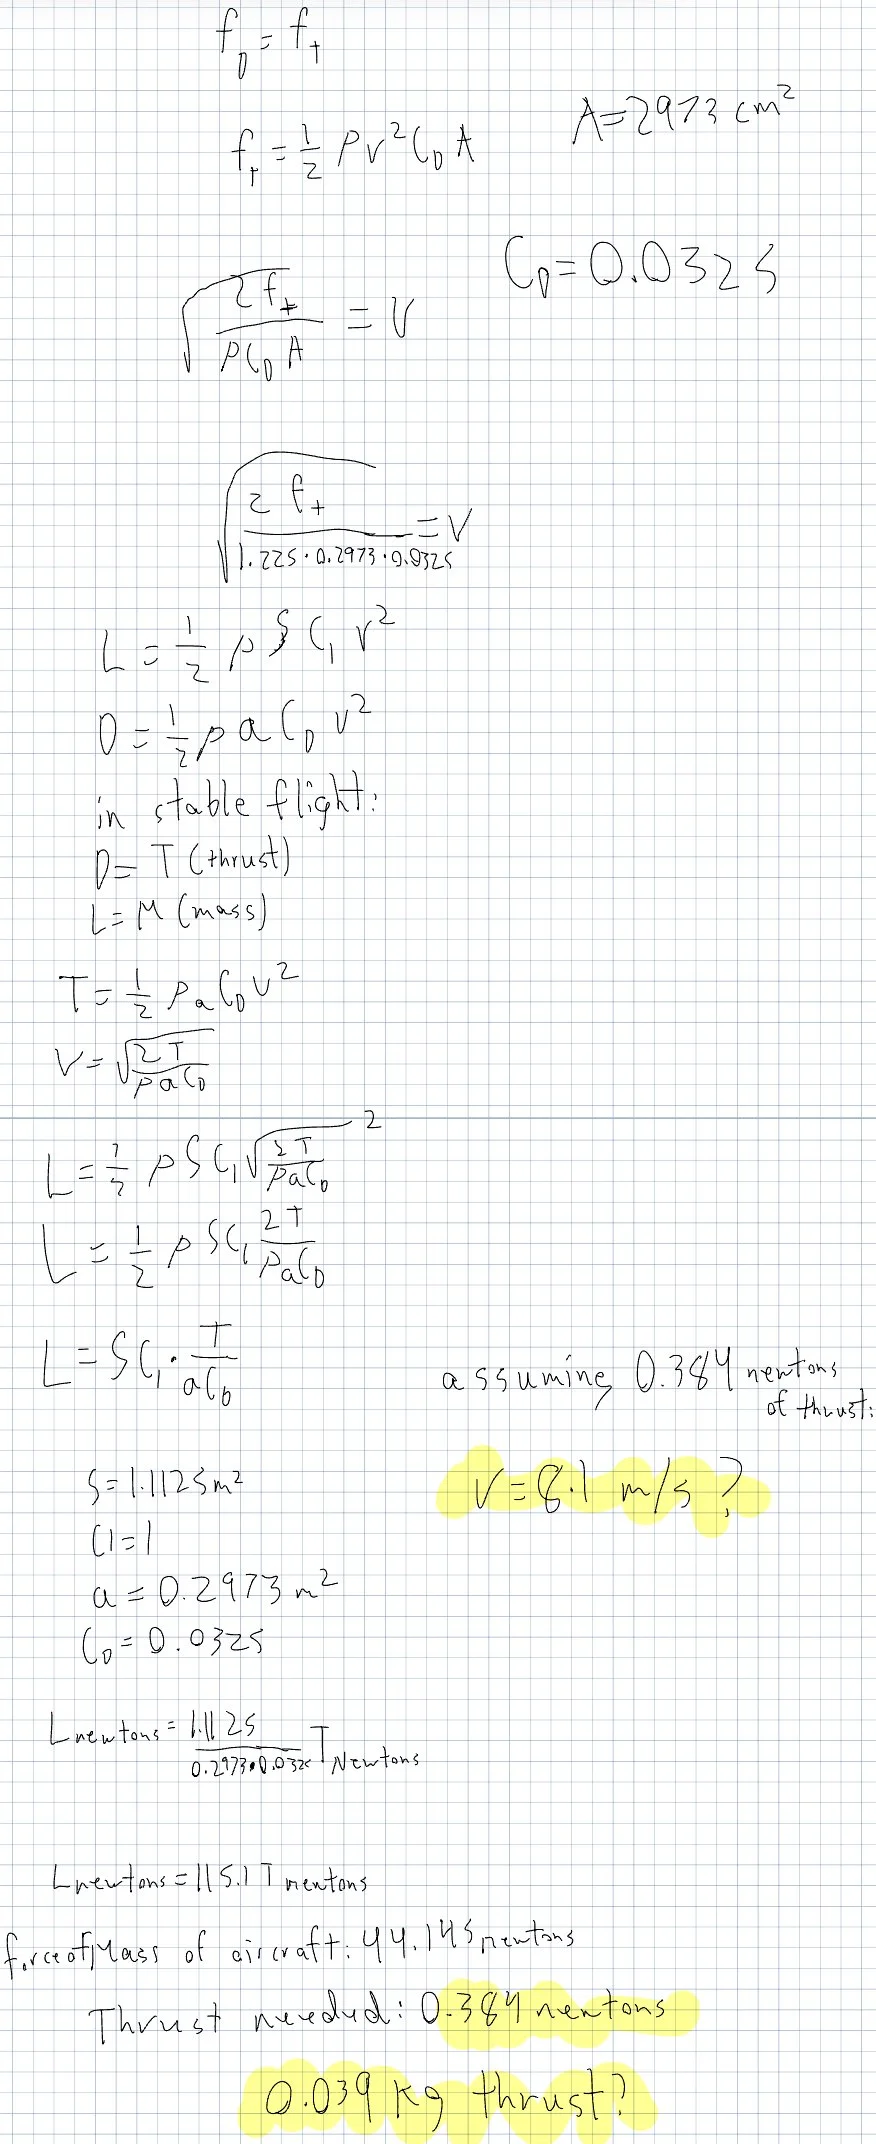 f_D = f_t
A = 2973 cm²
f_t = 1/2 ρv²C_D A
C_D = 0.0325
√(2f_t / ρC_D A) = V
√(2 f_t / 1.225 · 0.2973 · 0.0325) = V
L = 1/2 ρ S C_l V²
D = 1/2 ρ a C_D V²
in stable flight:
D = T (thrust)
L = M (mass)
T = 1/2 ρ a C_D V²
V = √(2T / ρaC_D)
L = 1/2 ρ S C_l √(2T / ρaC_D)²
L = 1/2 ρ S C_l 2T / ρaC_D
L = S C_l · T / aC_D
assuming 0.384 newtons
of thrust:
S = 1.1125 m²
V = 8.1 m/s ?
Cl = 1
a = 0.2973 m²
C_D = 0.0325
L newtons = 1.1125 / 0.2973 · 0.0325 T Newtons
L newtons = 115.1 T newtons
force of Mass of aircraft: 44.145 newtons
Thrust needed: 0.384 newtons
0.039 kg thrust?